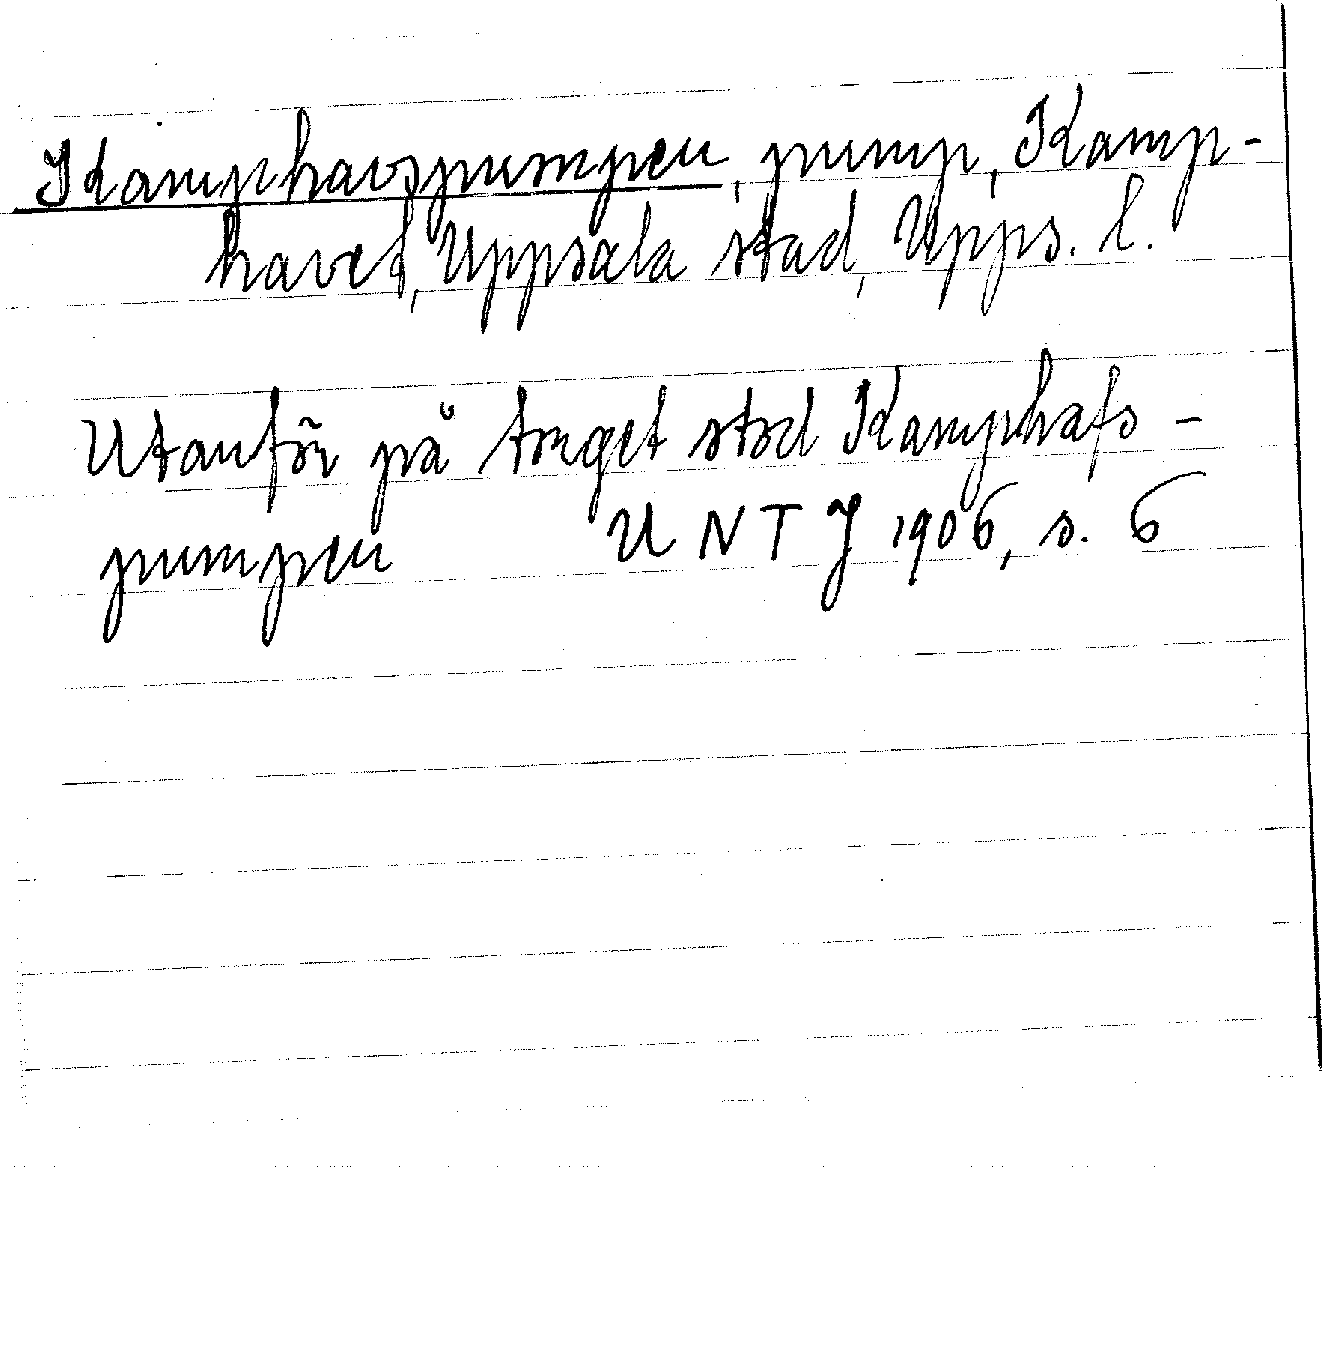 Kamphavspumpen, pump, Kamp-
havet, Uppsala stad, Upps. l.
Utanför på torget stod Kamphafs-
pumpen UNTJ 1906, s. 6